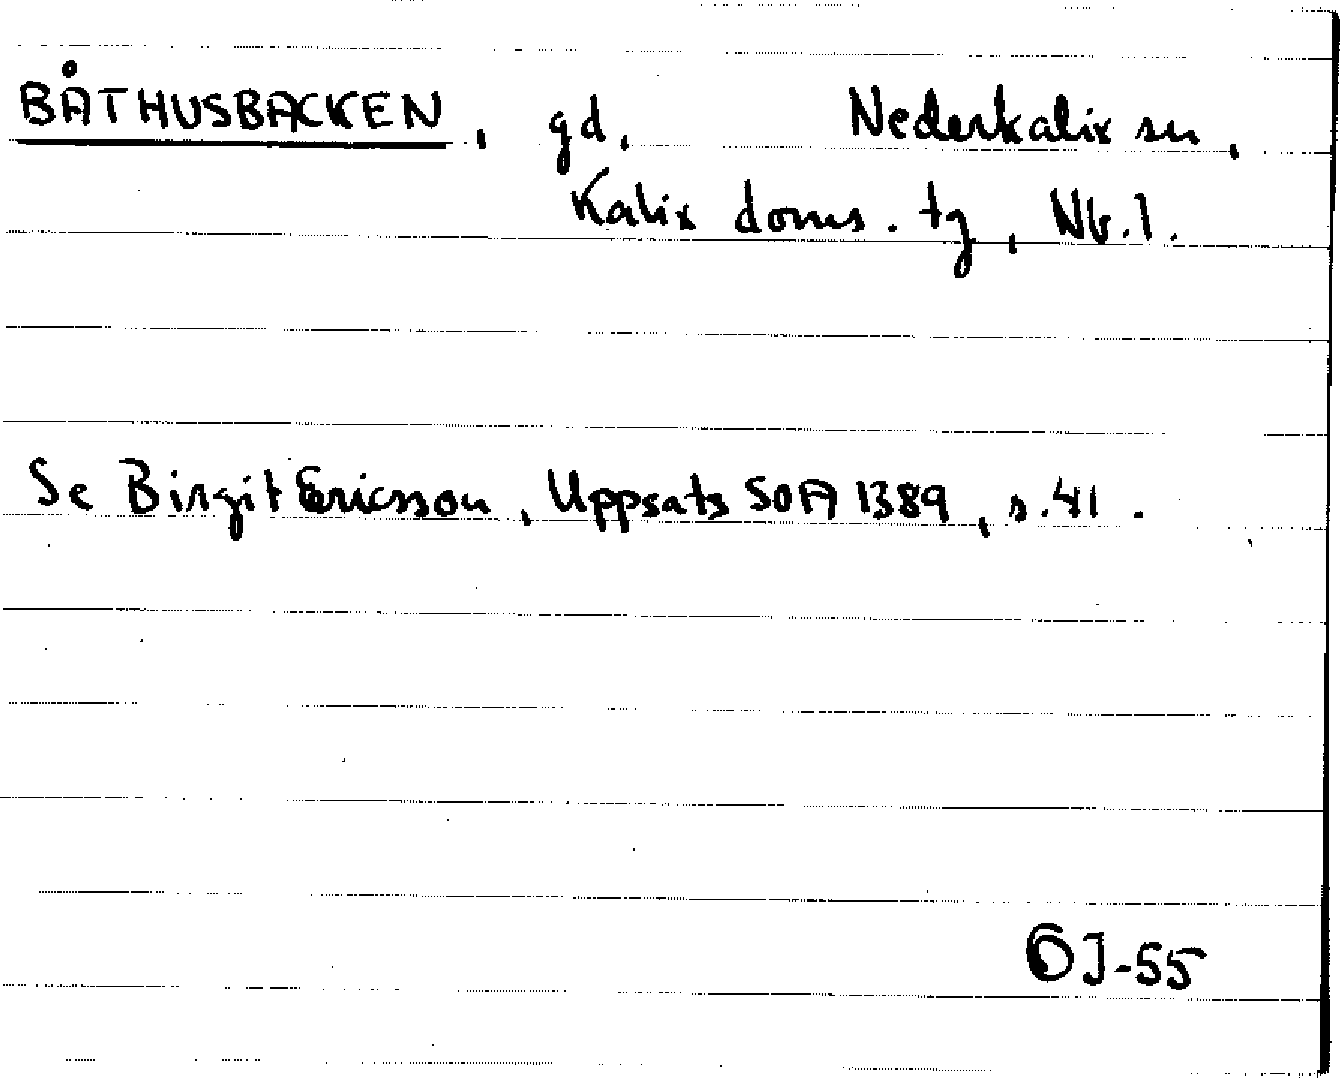 BÅTHUSBACKEN, gd, Nederkalix sn,
Kalix doms. tg, Nb.1.
Se Birgit Ericsson, Uppsats SOFI 1389, s.41.
ÖJ-55